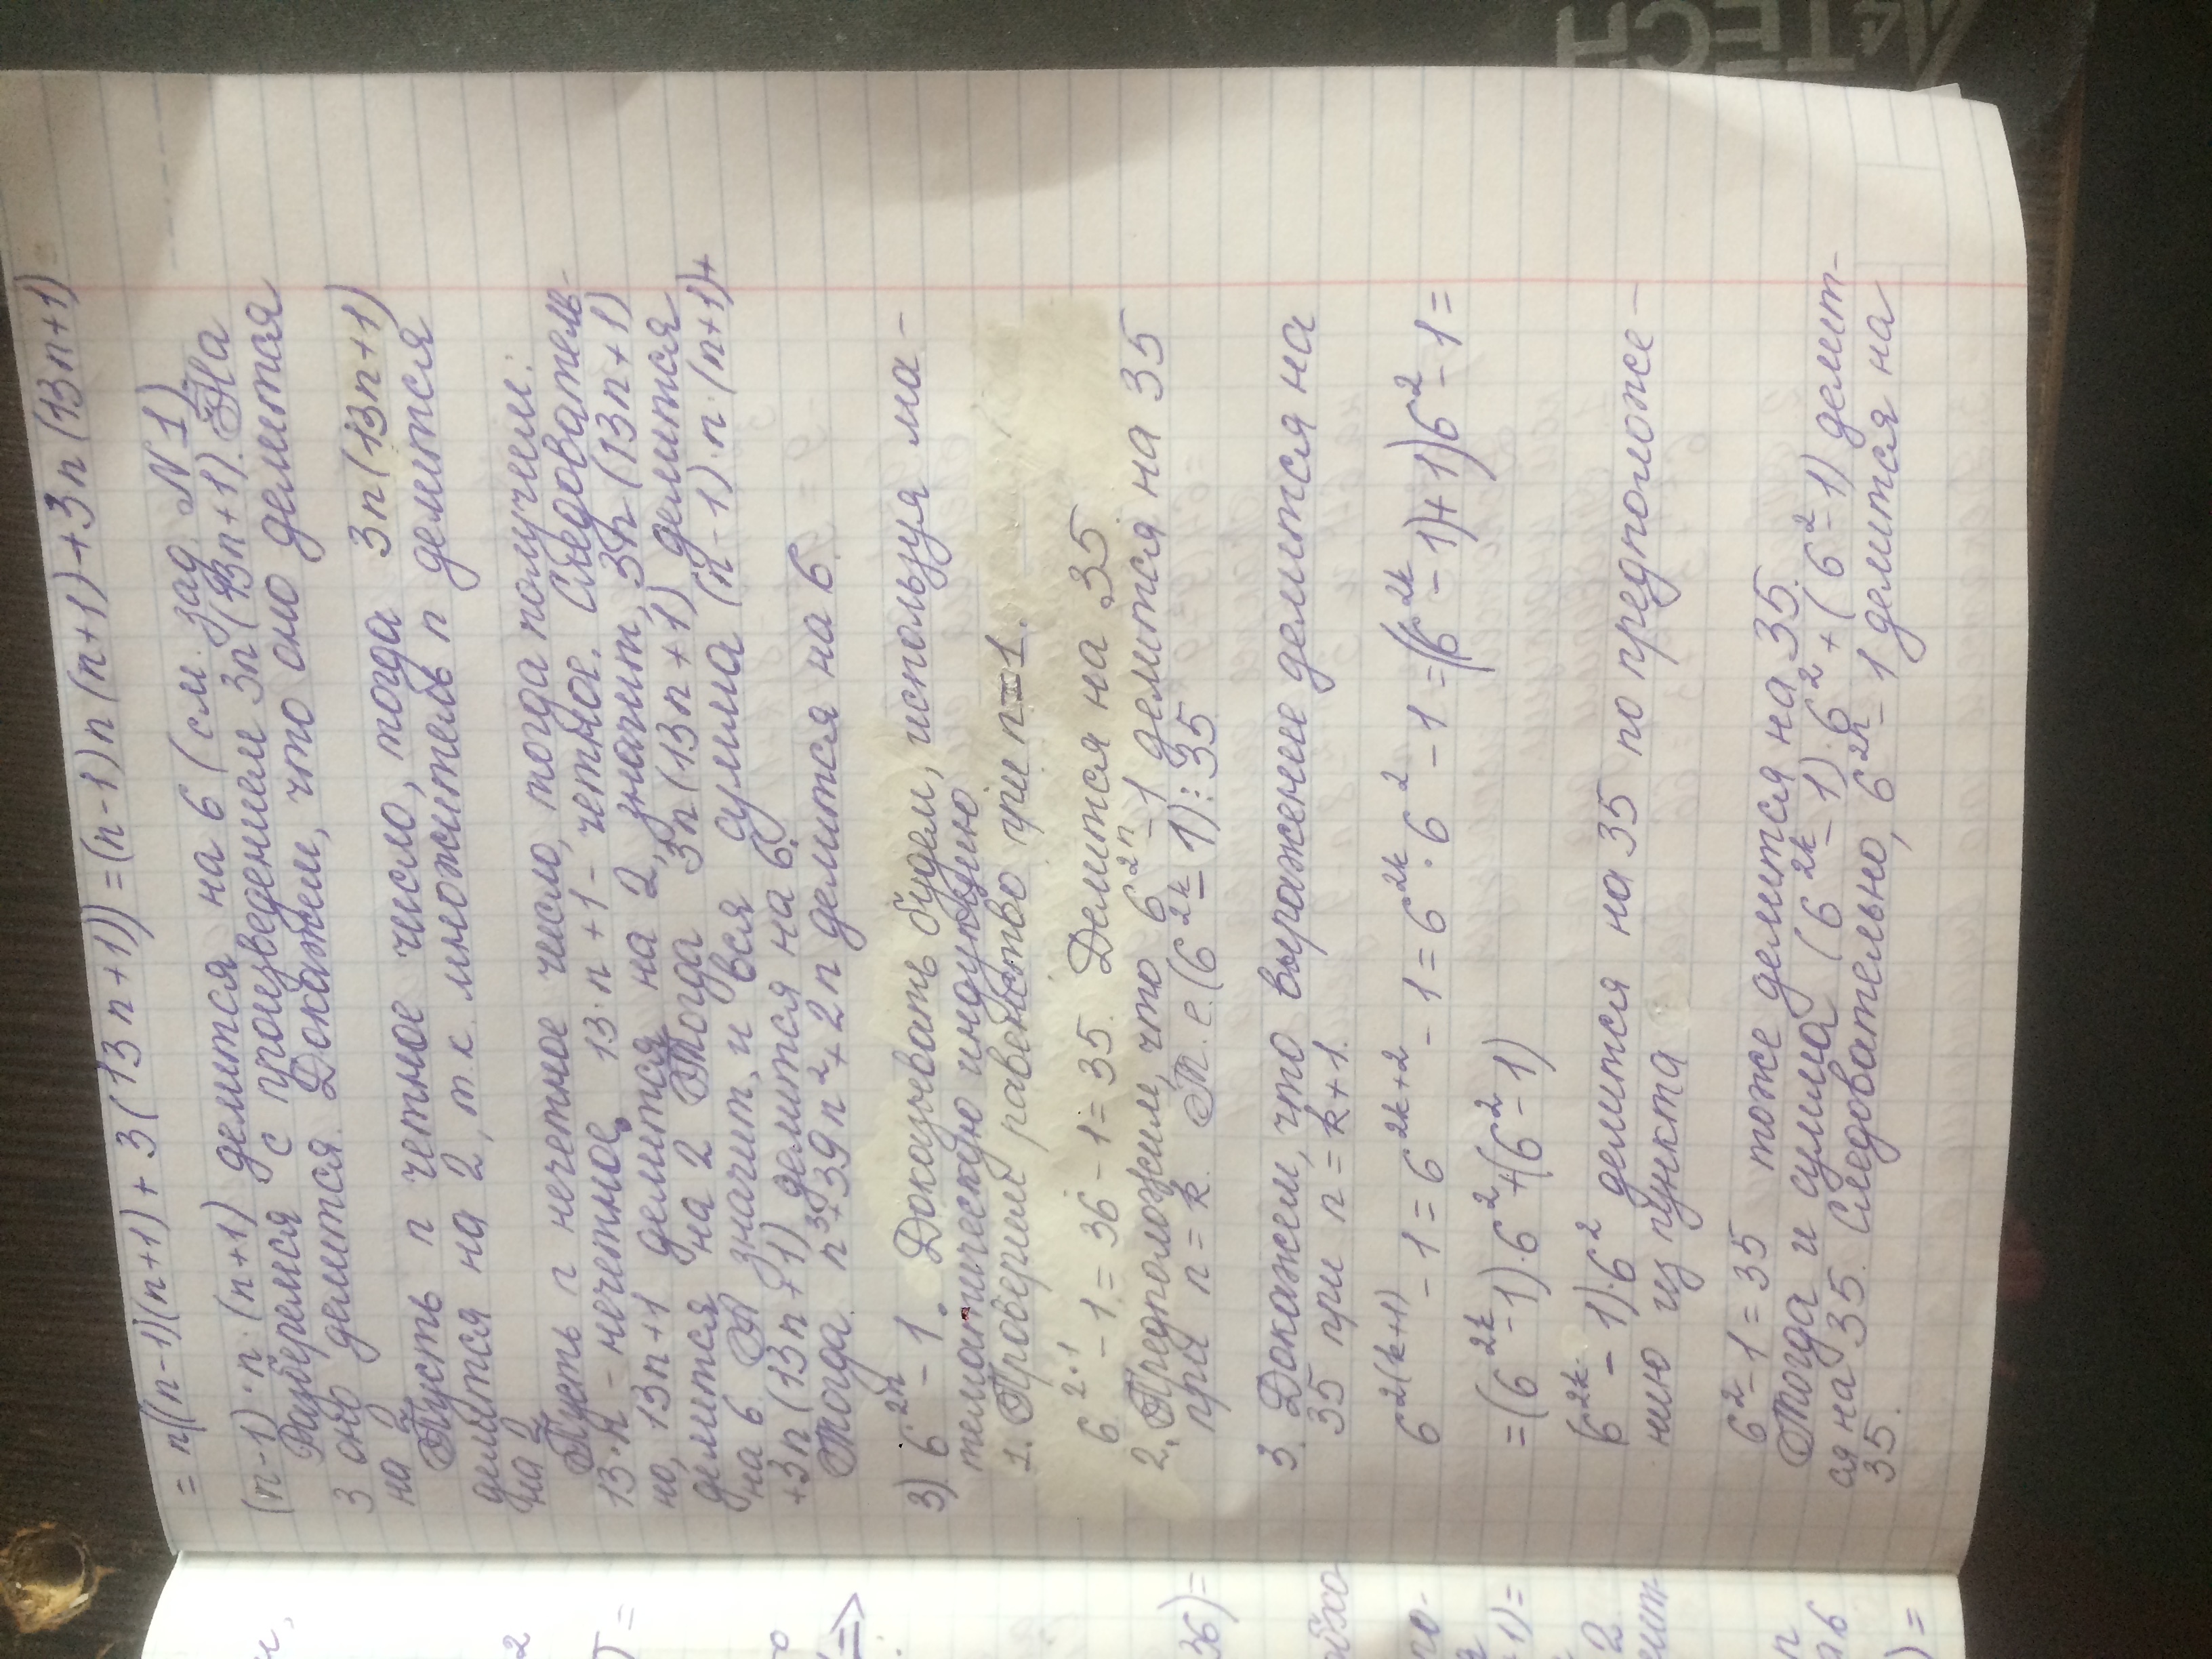 = n((n-1)(n+1)+3(13n+1)) = (n-1)n(n+1)+3n(13n+1)
(n-1)·n·(n+1) делится на 6 (см. зад. N1)
Разберемся с произведением 3n(13n+1). На
3 оно делится. Докажем, что оно делится
на 2
Пусть n четное число, тогда 3n(13n+1)
делится на 2, т.к. множитель n делится
на 2
Пусть n нечетное число, тогда получим:
13·n - нечетное, 13·n+1 - четное. Следователь-
но, 13n+1 делится на 2, значит, 3n(13n+1)
делится на 2 Тогда 3n(13n+1) делится
на 6 значит, и вся сумма (n-1)·n·(n+1)+
+3n(13n+1) делится на 6.
Тогда n³+39n²+2n делится на 6.
3) 6²ⁿ-1. Доказывать будем, используя ма-
тематическую индукцию.
1. Проверим равенство при n=1.
6²·¹-1=36-1=35. Делится на 35.
2. Предположим, что 6²ⁿ-1 делится на 35
при n=k. Т.е. (6²ᵏ-1)⋮35
3. Докажем, что выражение делится на
35 при n=k+1.
6²⁽ᵏ⁺¹⁾-1=6²ᵏ⁺²-1=6²ᵏ·6²-1=((6²ᵏ-1)+1)6²-1=
=(6²ᵏ-1)·6²+(6²-1)
(6²ᵏ-1)·6² делится на 35 по предположе-
нию из пункта
6²-1=35 тоже делится на 35.
Тогда и сумма (6²ᵏ-1)·6²+(6²-1) делит-
ся на 35. Следовательно, 6²ⁿ-1 делится на
35.
36)=
1)=
2
A4TECH